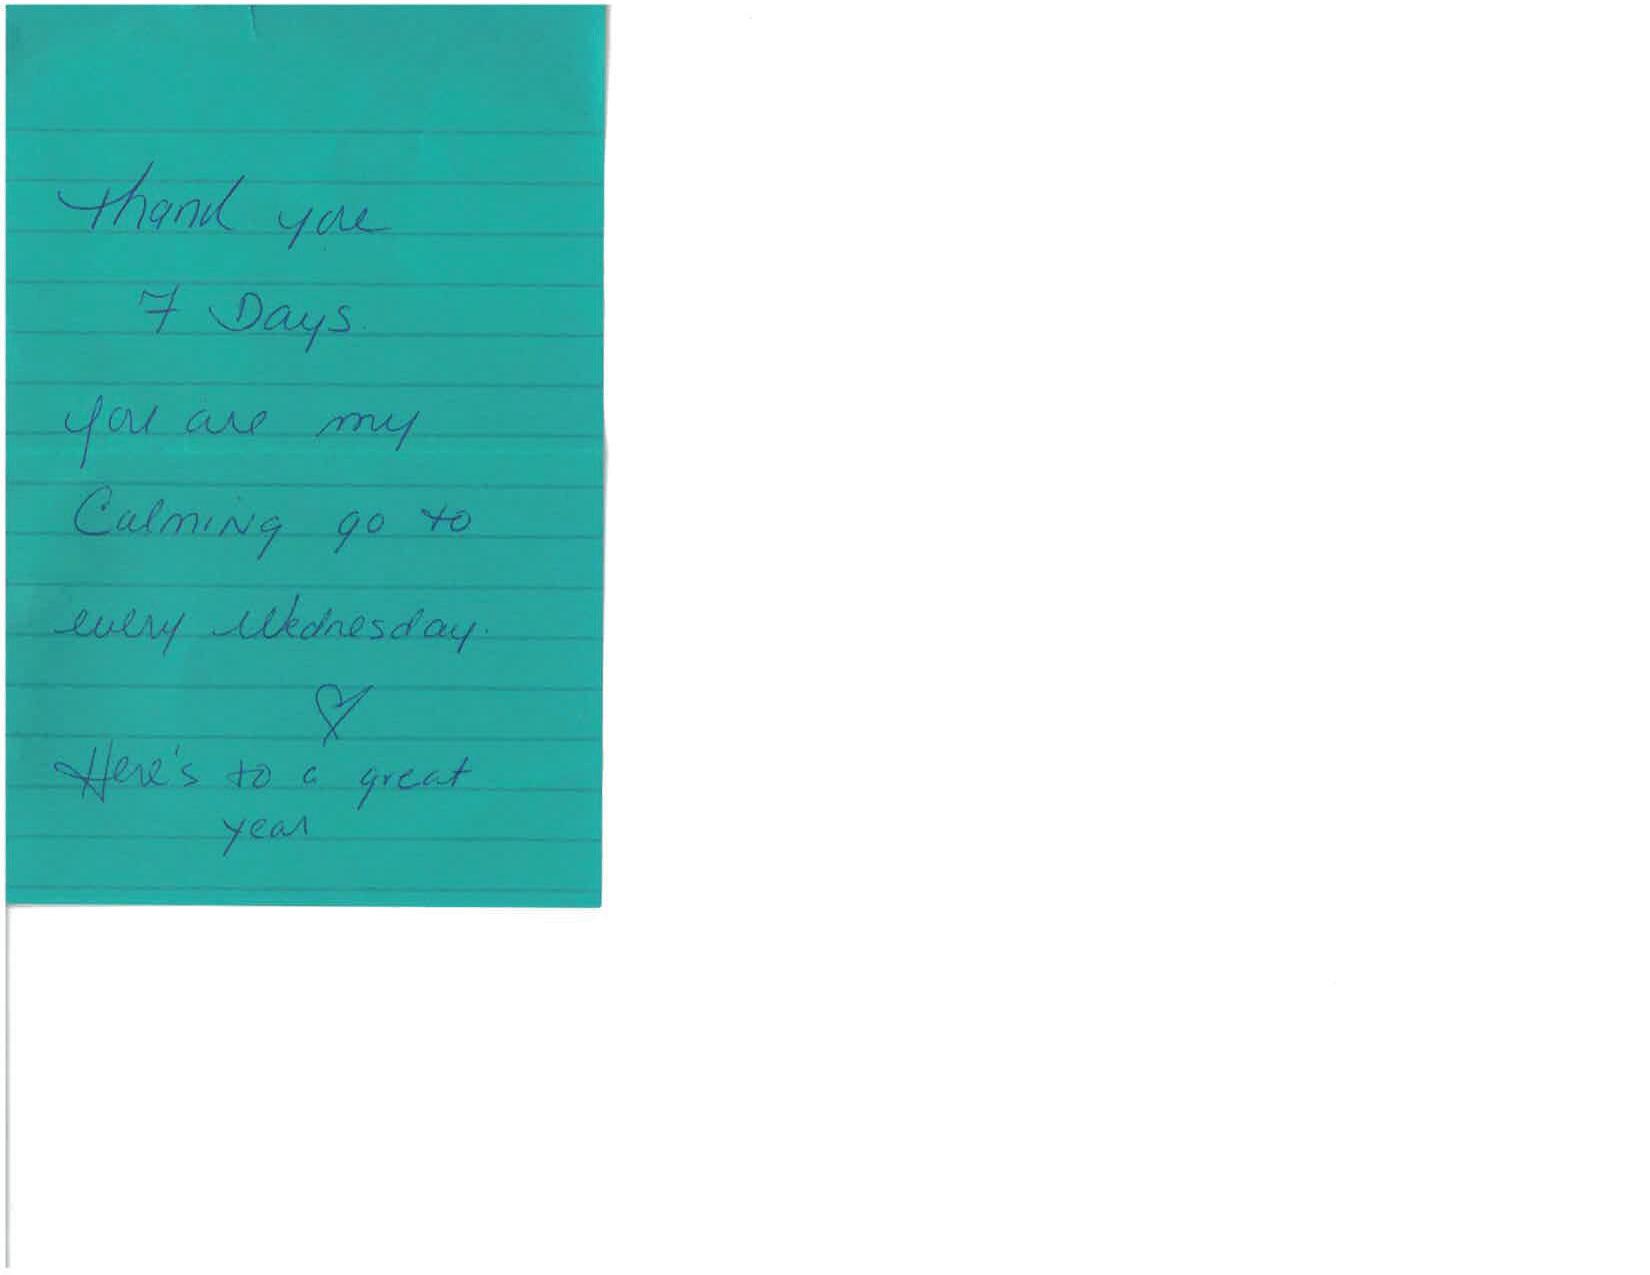 Thank you
7 Days.
you are my
Calming go to
every Wednesday.
♡
Here's to a great
year